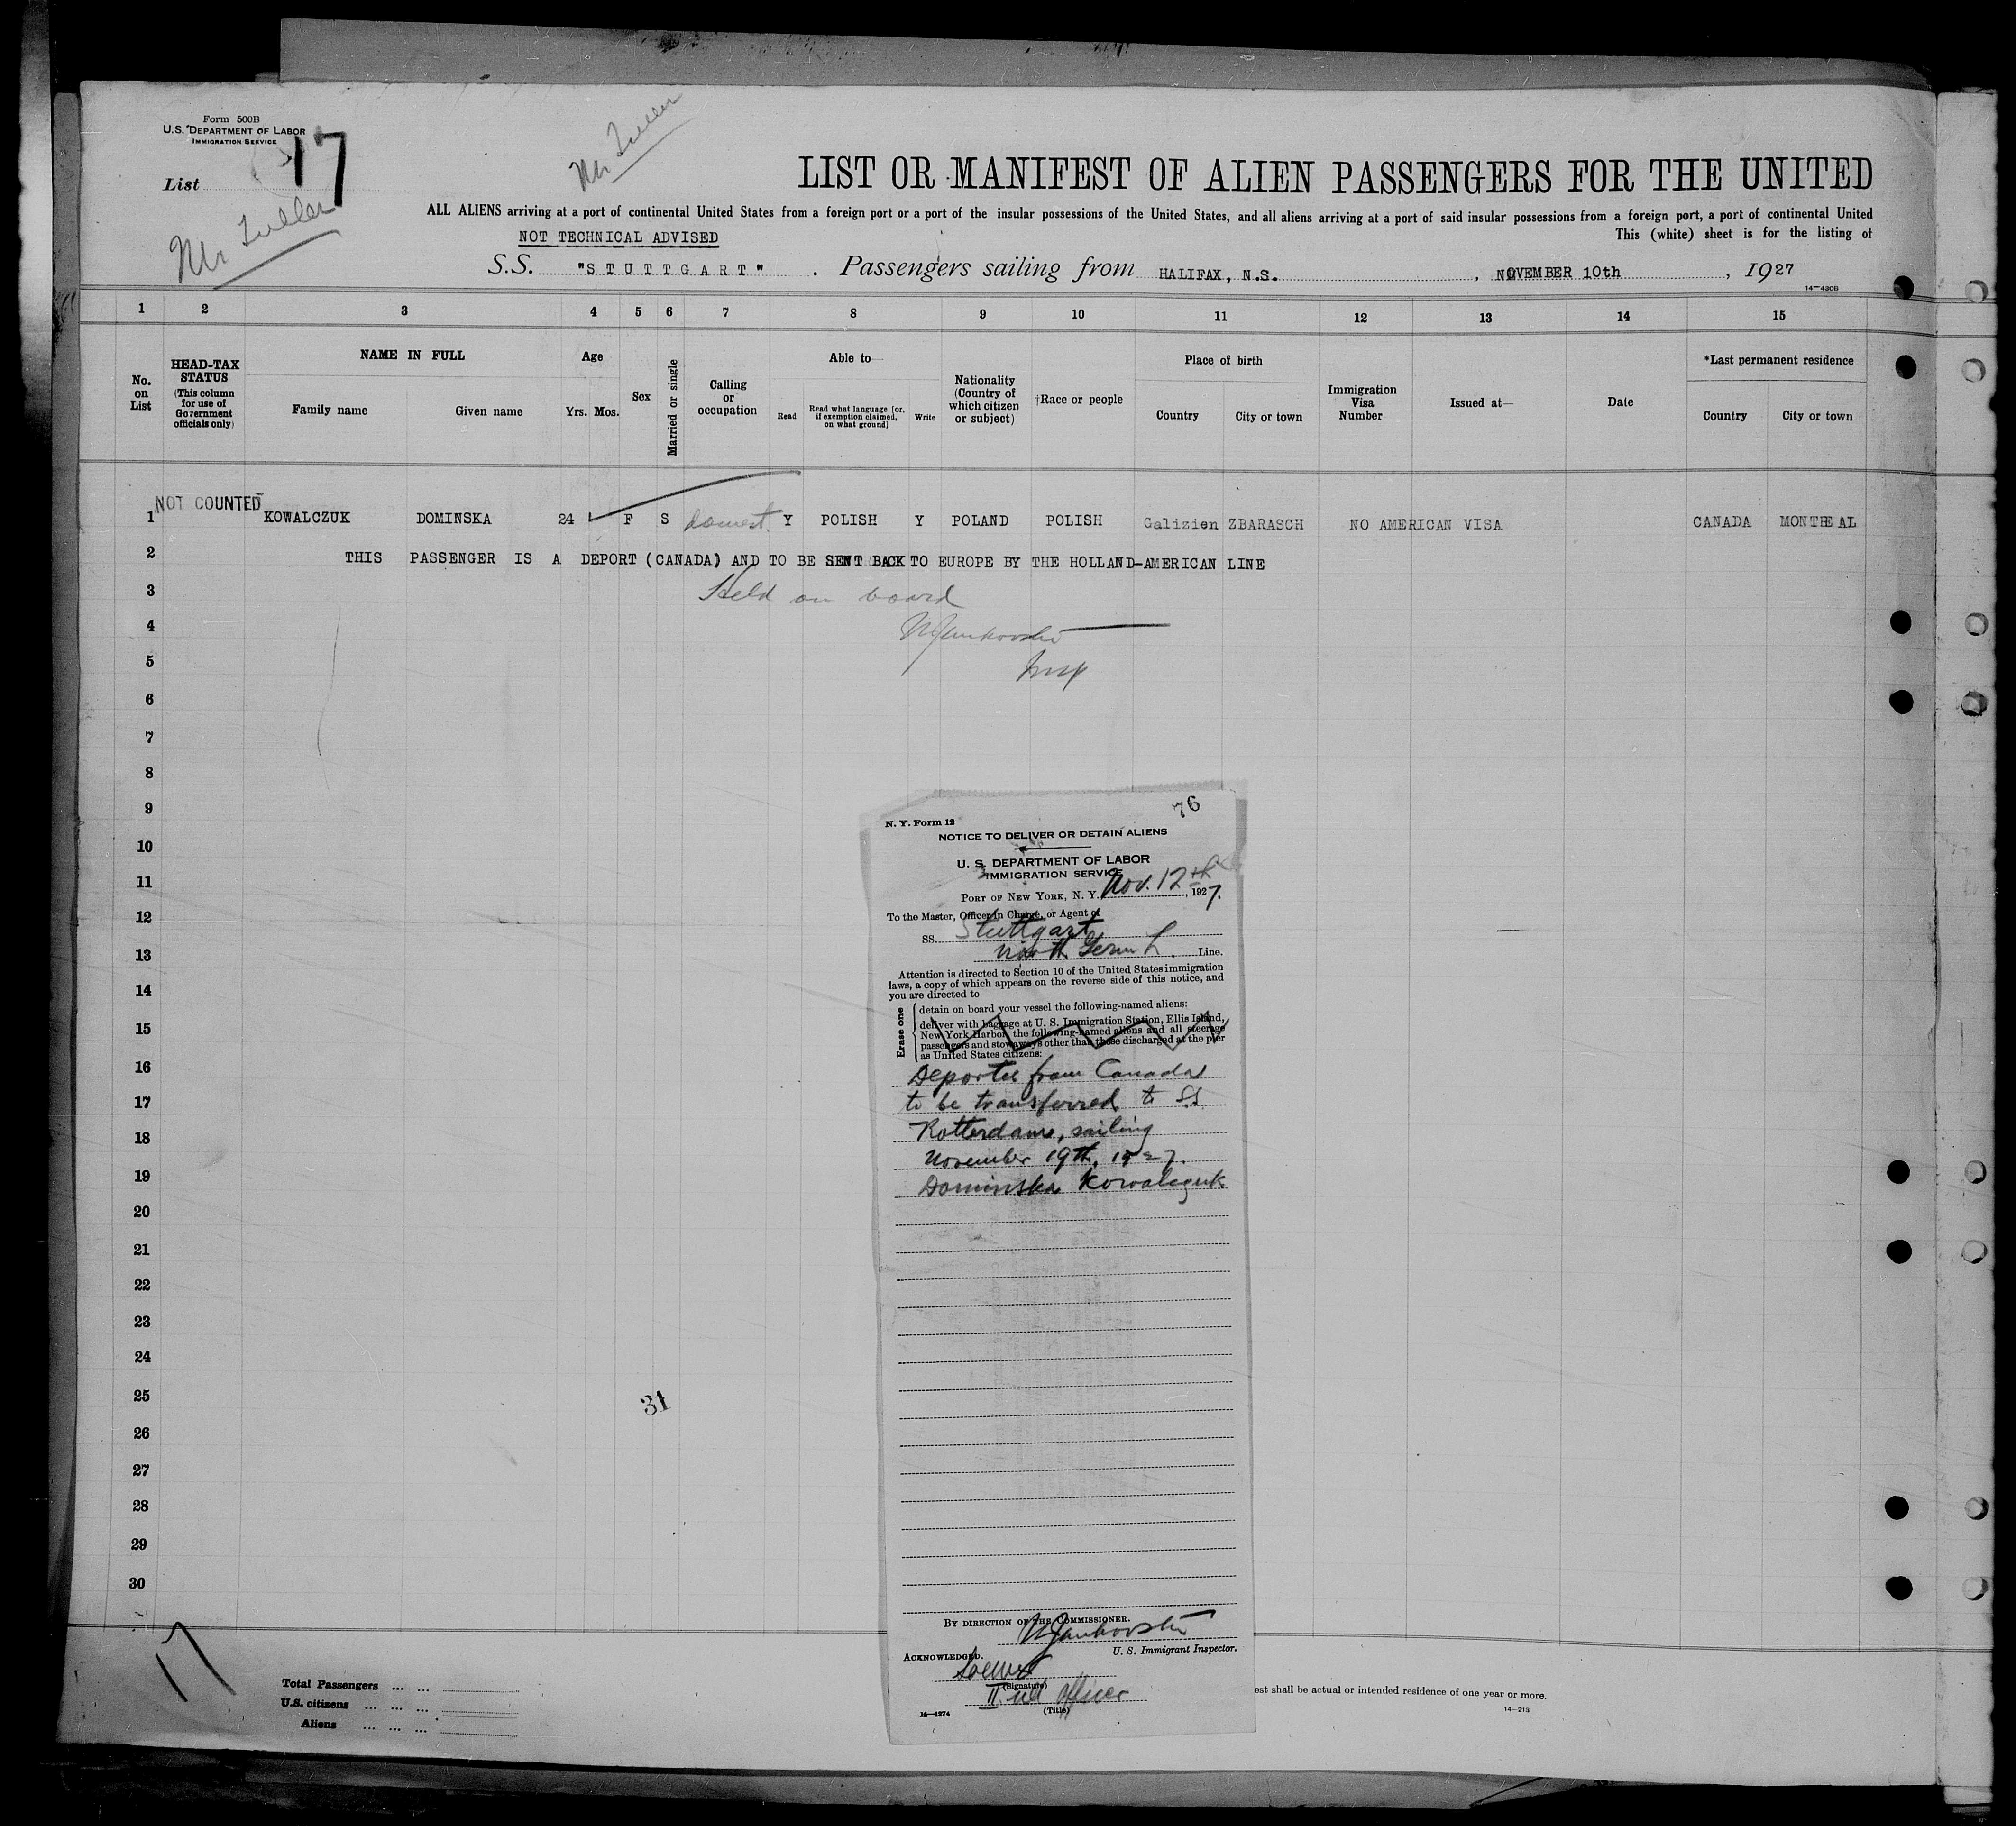 Form 500B
U.S. DEPARTMENT OF LABOR
IMMIGRATION SERVICE
List 17
LIST OR MANIFEST OF ALIEN PASSENGERS FOR THE UNITED
ALL ALIENS arriving at a port of continental United States from a foreign port or a port of the insular possessions of the United States, and all aliens arriving at a port of said insular possessions from a foreign port, a port of continental United
NOT TECHNICAL ADVISED
This (white) sheet is for the listing of
S.S. "STUTTGART". Passengers sailing from HALIFAX, N.S., NOVEMBER 10th, 1927
14—430B
1 2 3 4 5 6 7 8 9 10 11 12 13 14 15
No. on List
HEAD-TAX STATUS (This column for use of Government officials only)
NAME IN FULL
Family name Given name
Age
Yrs. Mos.
Sex
Married or single
Calling or occupation
Able to—
Read
Read what language [or, if exemption claimed, on what ground]
Write
Nationality (Country of which citizen or subject)
†Race or people
Place of birth
Country City or town
Immigration Visa Number
Issued at—
Date
*Last permanent residence
Country City or town
NOT COUNTED
1 KOWALCZUK DOMINSKA 24 F S domest. Y POLISH Y POLAND POLISH Galizien ZBARASCH NO AMERICAN VISA CANADA MONTREAL
2 THIS PASSENGER IS A DEPORT (CANADA) AND TO BE SENT BACK TO EUROPE BY THE HOLLAND-AMERICAN LINE
3 Held on board
4
5 Insp
6
7
8
9
10
11
12
13
14
15
16
17
18
19
20
21
22
23
24
25
26
27
28
29
30
31
76
N. Y. Form 12
NOTICE TO DELIVER OR DETAIN ALIENS
U. S. DEPARTMENT OF LABOR
IMMIGRATION SERVICE
PORT OF NEW YORK, N. Y. Nov. 12th, 1927.
To the Master, Officer in Charge, or Agent of
SS. Stuttgart
North Germ L. Line.
Attention is directed to Section 10 of the United States immigration
laws, a copy of which appears on the reverse side of this notice, and
you are directed to
Erase one
detain on board your vessel the following-named aliens:
deliver with baggage at U. S. Immigration Station, Ellis Island,
New York Harbor, the following-named aliens and all steerage
passengers and stowaways other than those discharged at the pier
as United States citizens:
Deportee from Canada
to be transferred to SS
Rotterdam, sailing
November 19th, 1927.
Dominska Kowalczuk
BY DIRECTION OF THE COMMISSIONER.
U. S. Immigrant Inspector.
ACKNOWLEDGED.
(Signature)
II Officer
(Title)
14—1274
17
Total Passengers ... ...
U.S. citizens ... ... ...
Aliens ... ... ...
est shall be actual or intended residence of one year or more.
14—213